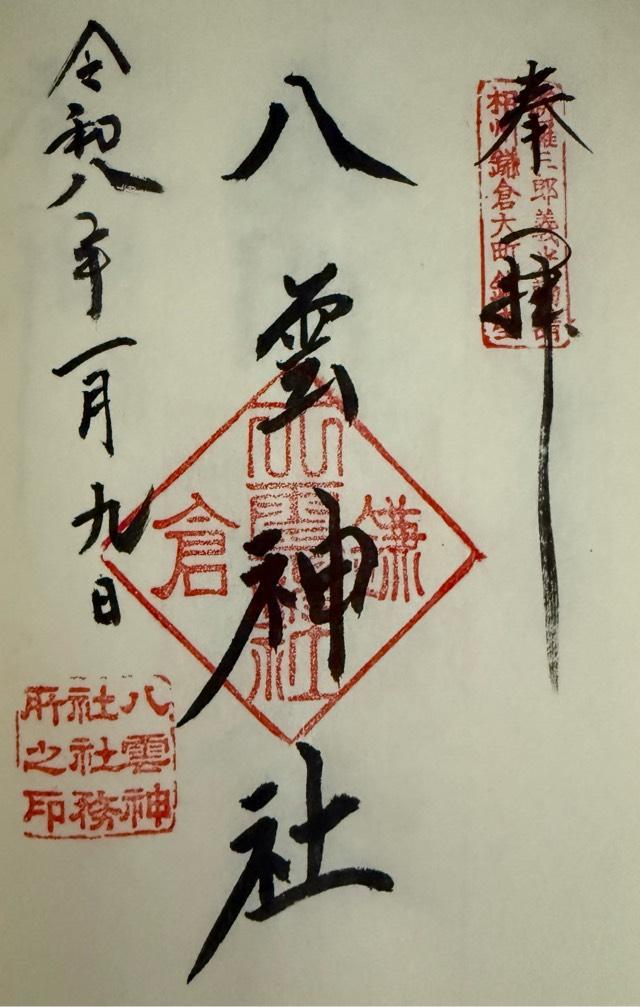 奉拝
相州鎌倉大町
八雲神社
鎌倉
八雲神社
令和八年一月九日
八雲神
社社務
所之印